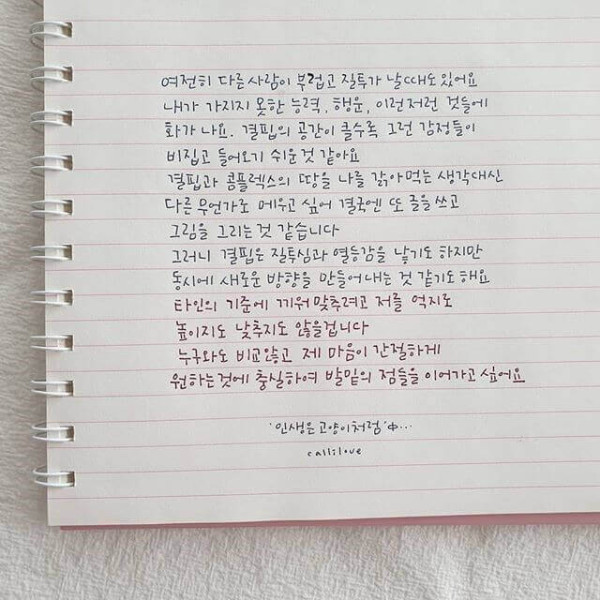 여전히 다른 사람이 부럽고 질투가 날 때도 있어요
내가 가지지 못한 능력, 행운, 이런저런 것들에
화가 나요. 결핍의 공간이 클수록 그런 감정들이
비집고 들어오기 쉬운 것 같아요
결핍과 콤플렉스의 땅을 나를 갉아먹는 생각대신
다른 무언가로 메우고 싶어 결국엔 또 글을 쓰고
그림을 그리는 것 같습니다
그러니 결핍은 질투심과 열등감을 낳기도 하지만
동시에 새로운 방향을 만들어내는 것 같기도해요
타인의 기준에 끼워맞추려고 저를 억지로
높이지도 낮추지도 않을겁니다
누구와도 비교않고 제 마음이 간절하게
원하는것에 충실하여 발밑의 점들을 이어가고 싶어요
'인생은 고양이처럼' 中...
callilove